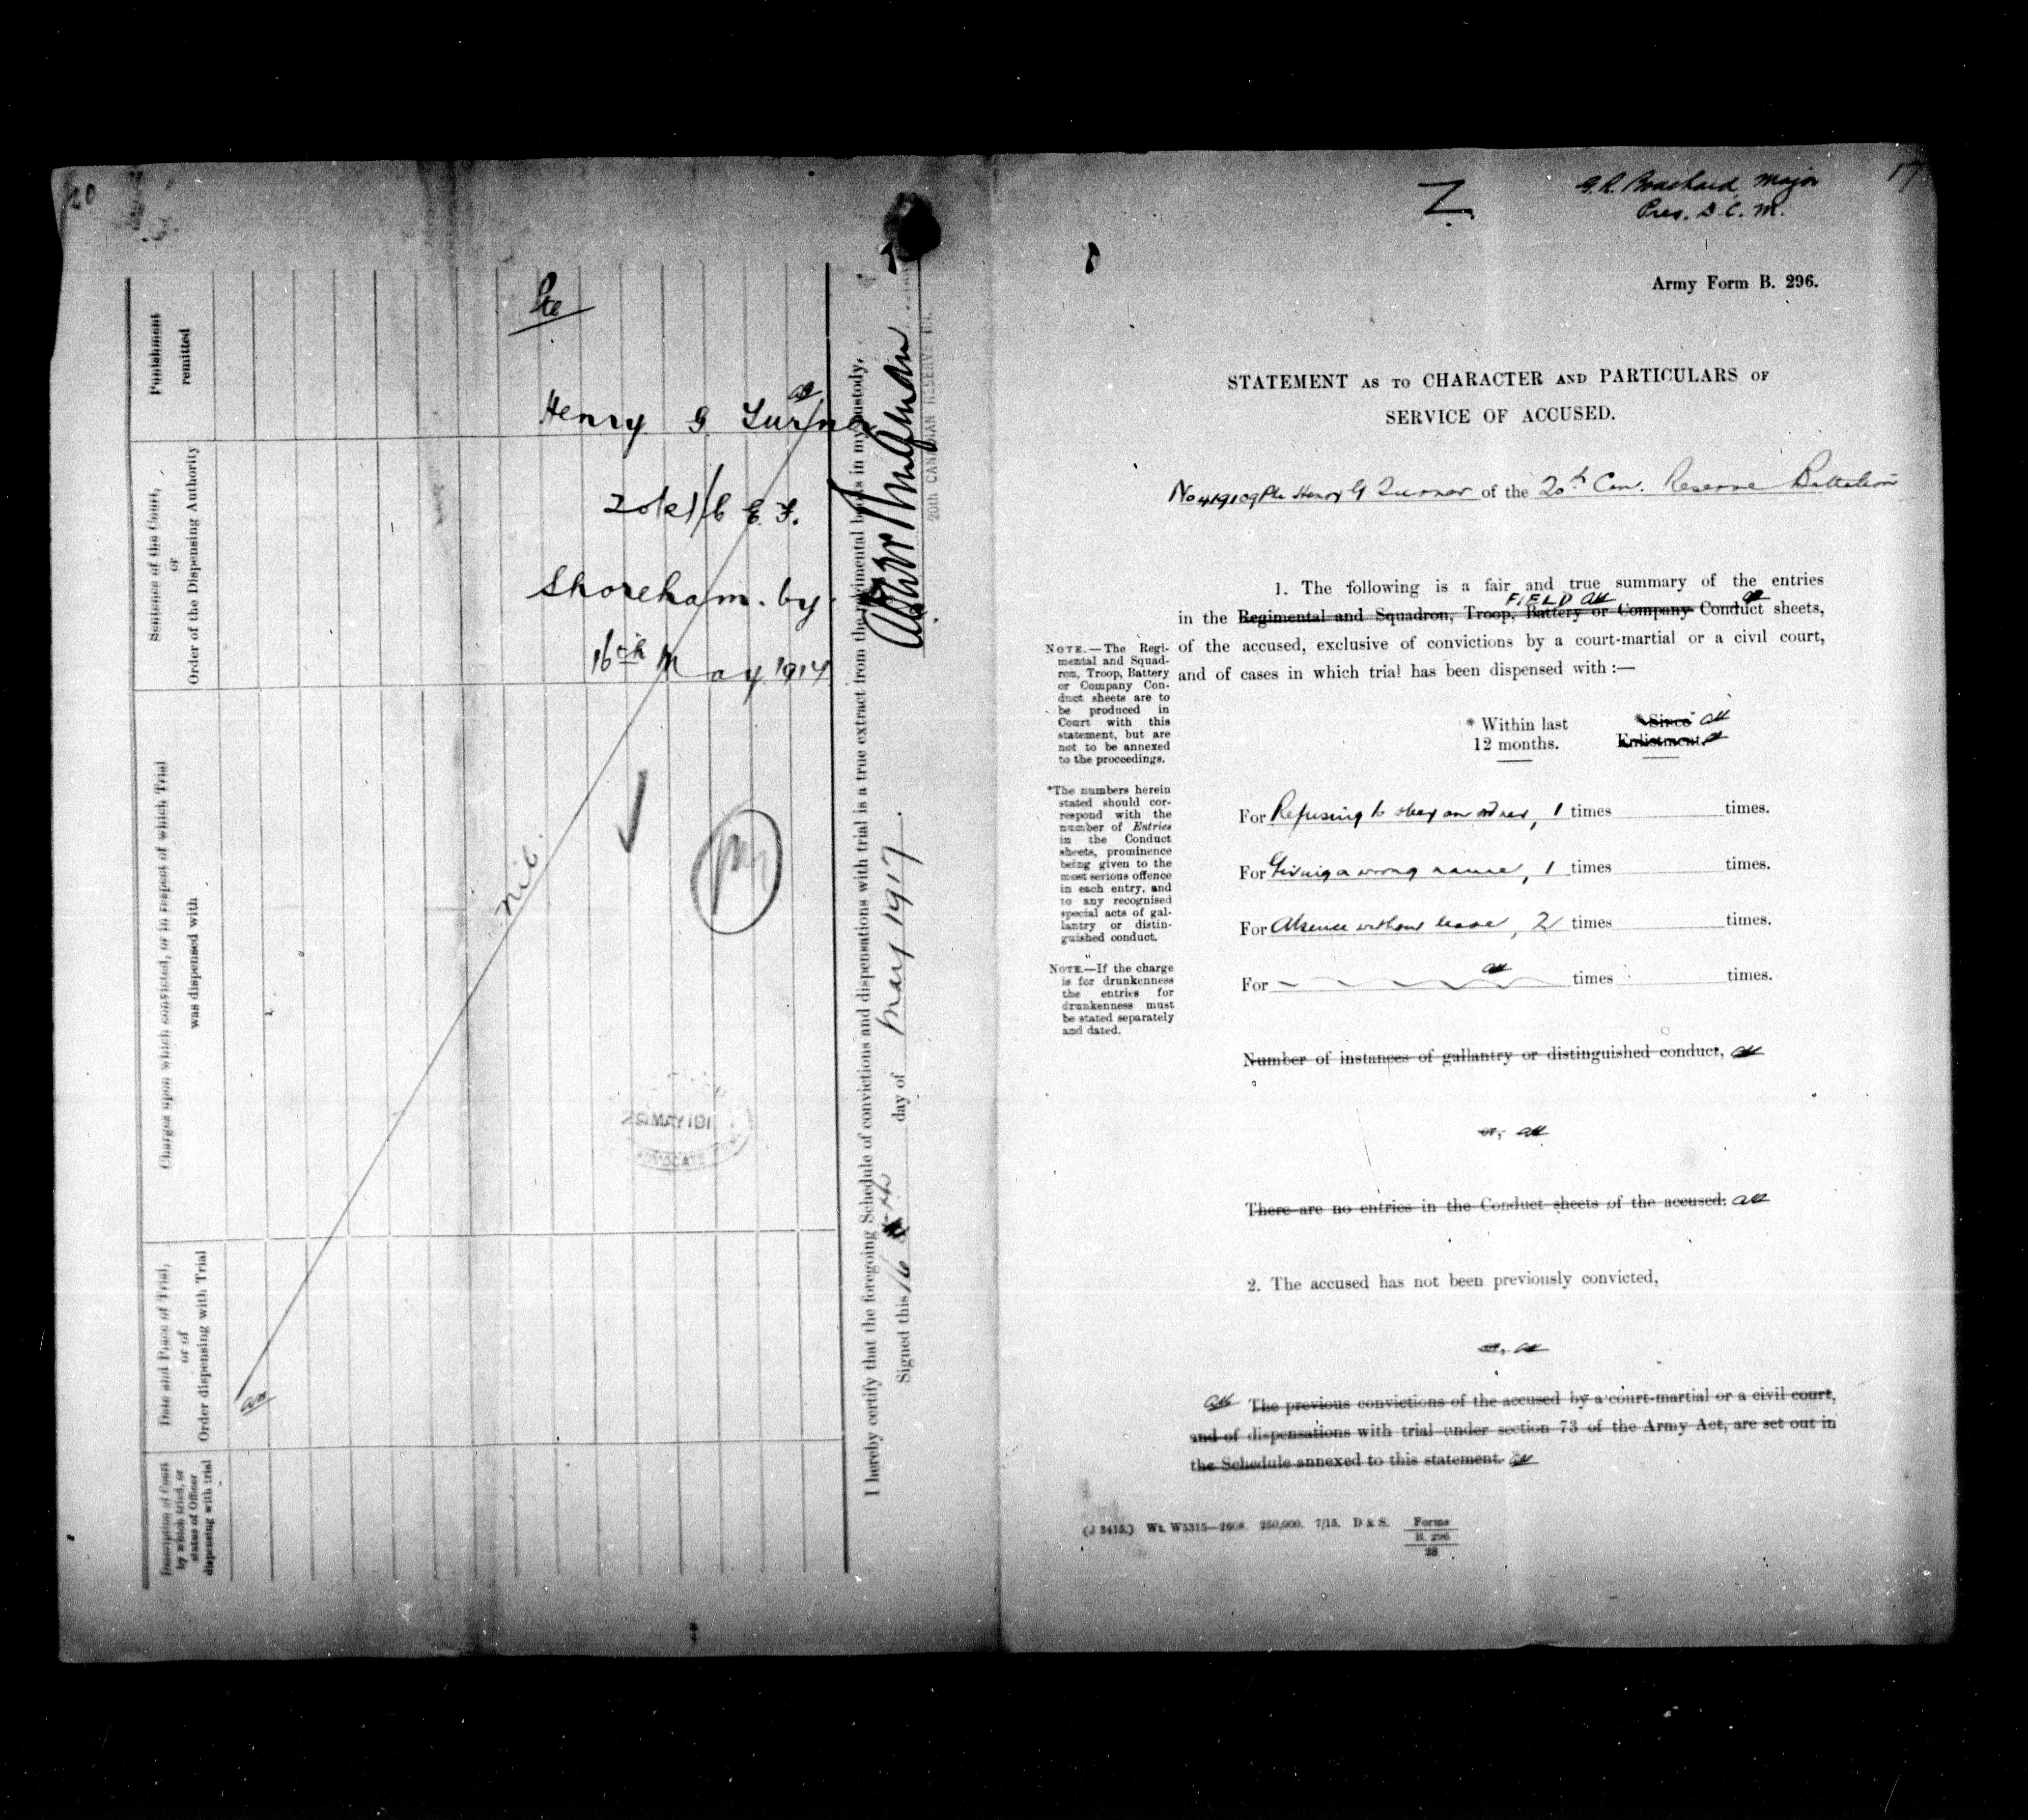 20
Punishment
remitted
Sentence of the Court,
or
Order of the Dispensing Authority
Charges upon which convicted, or in respect of which Trial
was dispensed with
Date and Place of Trial,
or of
Order dispensing with Trial
Description of Court
by which tried, or
status of Officer
dispensing with trial
nil
Pte
Henry G Turner
Shoreham. by
16th May 1917
I hereby certify that the foregoing Schedule of convictions and dispensations with trial is a true extract from the regimental books in my custody.
Signed this 16th day of May 1917.
20th CANADIAN RESERVE
17
Z
Major
Pres. D. C. M.
Army Form B. 296.
STATEMENT AS TO CHARACTER AND PARTICULARS OF
SERVICE OF ACCUSED.
No 419109 Pte Henry G Turner of the 20th Can. Reserve Battalion
1. The following is a fair and true summary of the entries
FIELD
in the Regimental and Squadron, Troop, Battery or Company Conduct sheets,
of the accused, exclusive of convictions by a court-martial or a civil court,
and of cases in which trial has been dispensed with :—
NOTE.—The Regi-
mental and Squad-
ron, Troop, Battery
or Company Con-
duct sheets are to
be produced in
Court with this
statement, but are
not to be annexed
to the proceedings.
* Within last
12 months.
* Since
Enlistment.
*The numbers herein
stated should cor-
respond with the
number of Entries
in the Conduct
sheets, prominence
being given to the
most serious offence
in each entry, and
to any recognised
special acts of gal-
lantry or distin-
guished conduct.
For Refusing to obey an order, 1 times times.
For Giving a wrong name, 1 times times.
For Absence without leave, 2 times times.
For times times.
NOTE.—If the charge
is for drunkenness
the entries for
drunkenness must
be stated separately
and dated.
Number of instances of gallantry or distinguished conduct,
or,
There are no entries in the Conduct sheets of the accused.
2. The accused has not been previously convicted,
or,
The previous convictions of the accused by a court-martial or a civil court,
and of dispensations with trial under section 73 of the Army Act, are set out in
the Schedule annexed to this statement.
(J 3415.) Wt. W5315—2608. 250,000. 7/15. D & S. Forms
B. 296
28